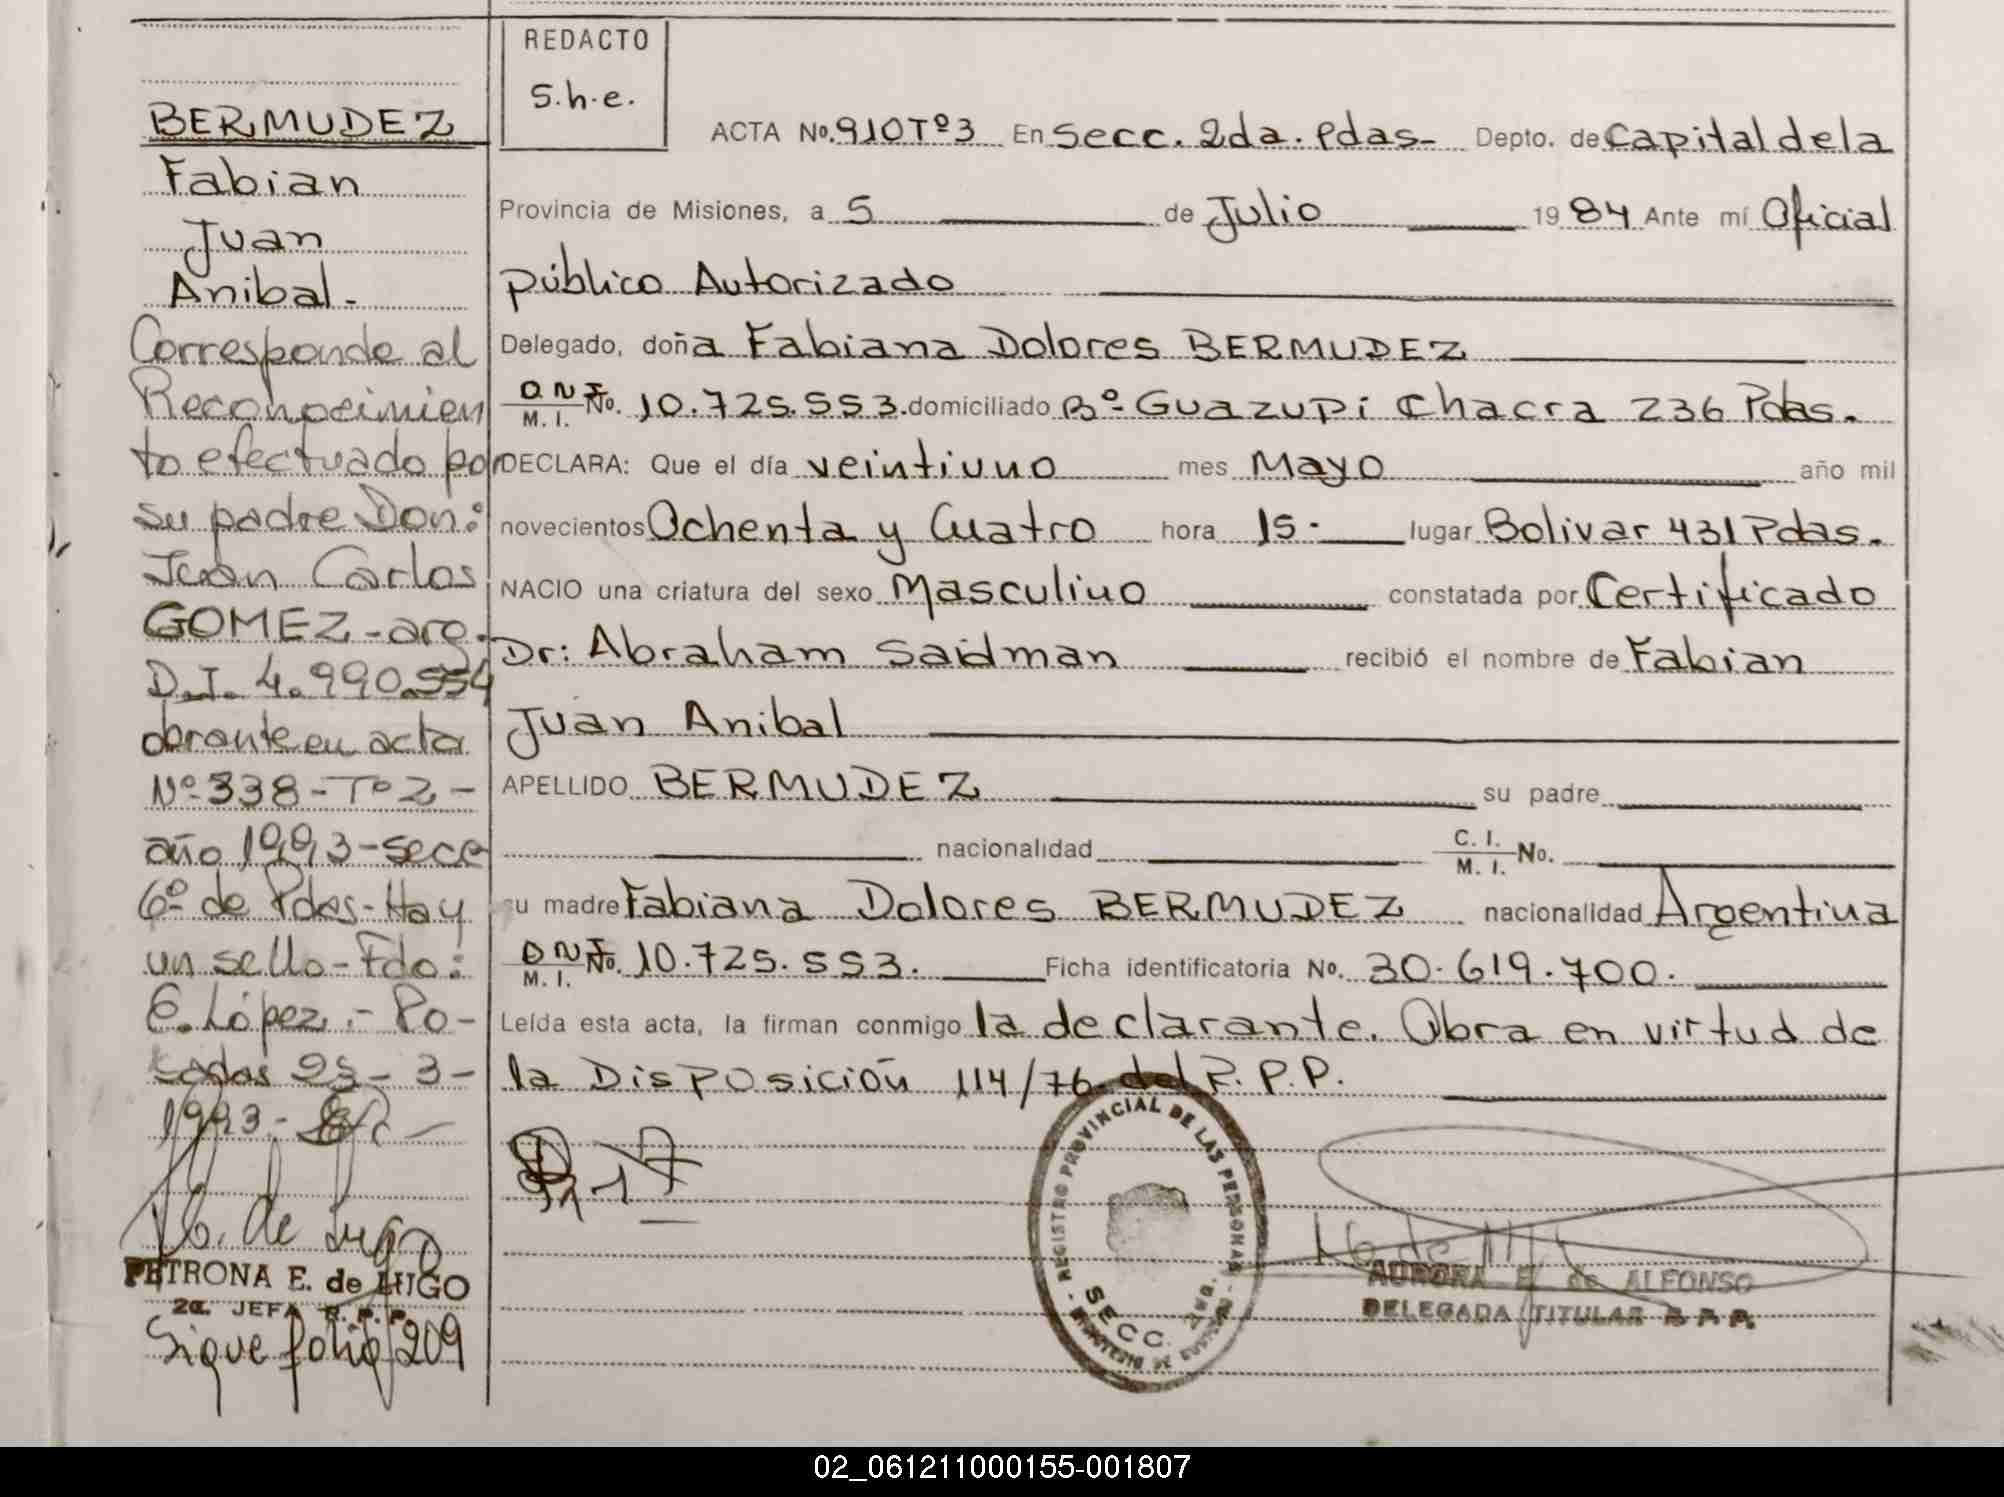 BERMUDEZ
Fabian
Juan
Anibal-
Corresponde al
Reconocimien
to efectuado por
su padre Don:
Juan Carlos
GOMEZ-arg.
D.I. 4.990.554
obrante en acta
Nº338-Tº2-
año 1993-secc
6º de Pdas-Hay
un sello-Fdo:
E. López.- Po-
sadas 25-3-
1993.-
E. de Lugo
PETRONA E. de LUGO
2a. JEFA R. P. P.
Sigue folio 209
REDACTO
S.h.e.
ACTA No. 910Tº3 En Secc. 2da. Pdas- Depto. de Capital de la
Provincia de Misiones, a 5 de Julio 1984 Ante mí Oficial
público Autorizado
Delegado, doña Fabiana Dolores BERMUDEZ
D N I M. I. No. 10.725.553. domiciliado Bº- Guazupi Chacra 236 Pdas.
DECLARA: Que el día veintiuno mes Mayo año mil
novecientos Ochenta y Cuatro hora 15. lugar Bolivar 431 Pdas.
NACIO una criatura del sexo Masculino constatada por Certificado
Dr: Abraham Saidman recibió el nombre de Fabian
Juan Anibal
APELLIDO BERMUDEZ su padre
nacionalidad C. I. M. I. No.
su madre Fabiana Dolores BERMUDEZ nacionalidad Argentina
D N I M. I. No. 10.725.553. Ficha identificatoria No. 30.619.700.
Leída esta acta, la firman conmigo la declarante. Obra en virtud de
la Disposición 114/76 del R.P.P.
REGISTRO PROVINCIAL DE LAS PERSONAS
SECC. 2DA.
AURORA E. de ALFONSO
DELEGADA TITULAR R. P. P.
02_061211000155-001807